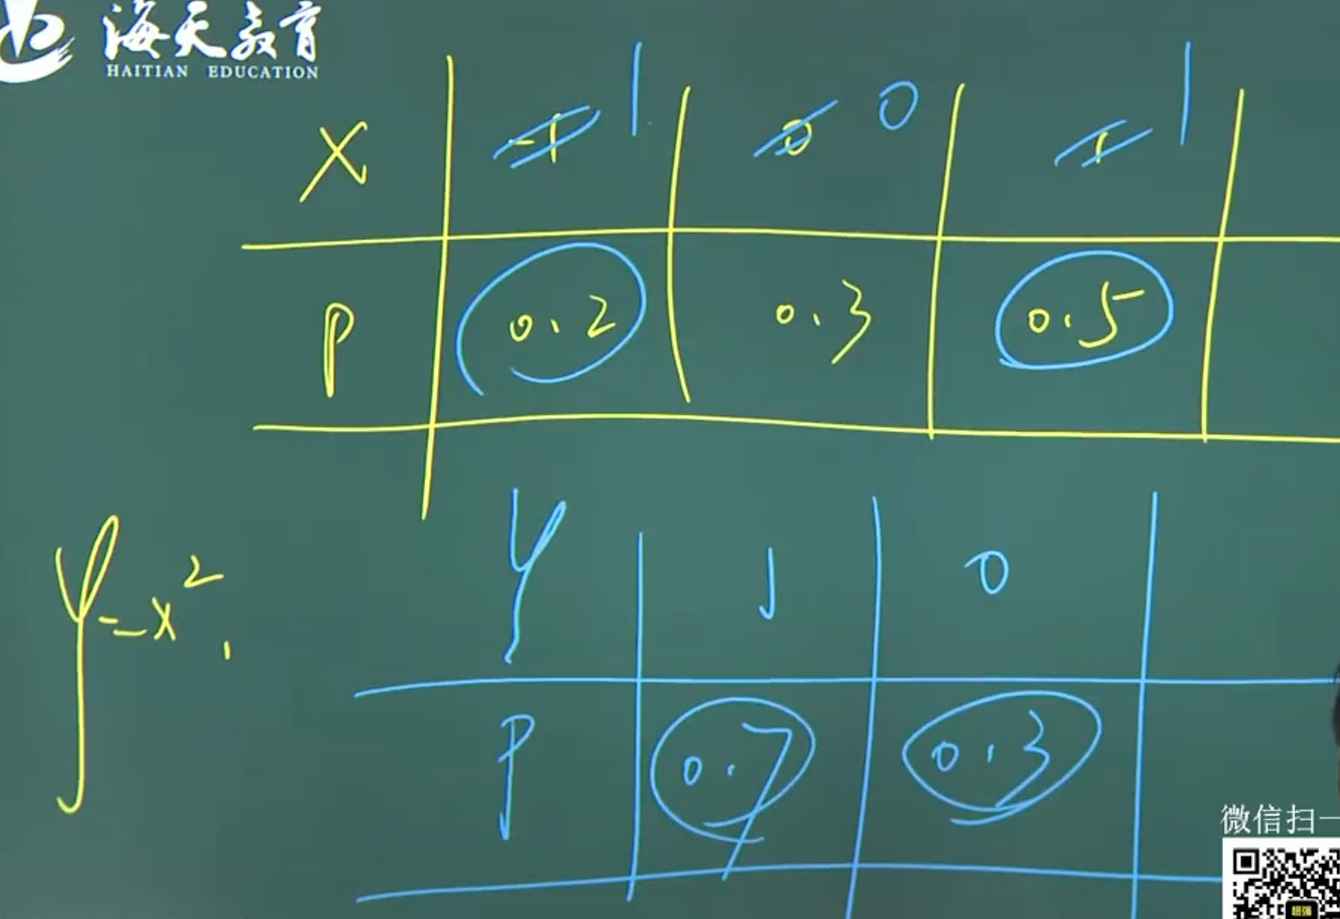 海天教育
HAITIAN EDUCATION
X -1 1 0 0 1 1
P 0.2 0.3 0.5
Y=x².
Y 1 0
P 0.7 0.3
微信扫一